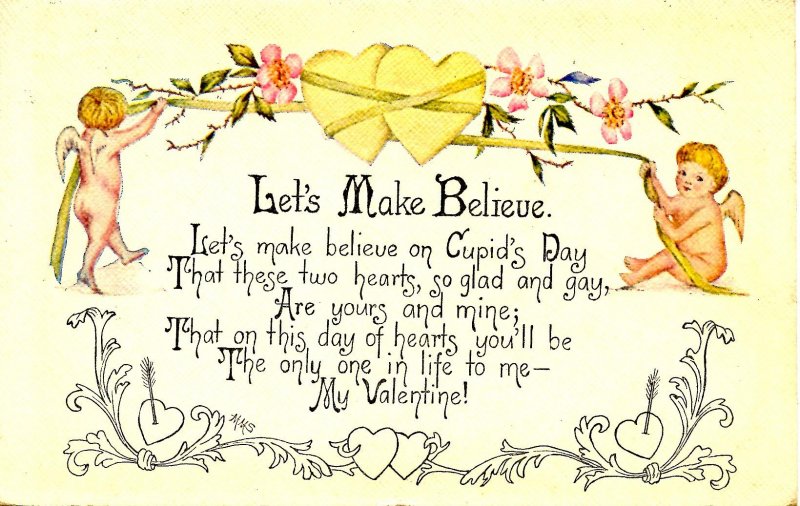 Let's Make Believe.
Let's make believe on Cupid's Day
That these two hearts, so glad and gay,
Are yours and mine;
That on this day of hearts you'll be
The only one in life to me—
My Valentine!